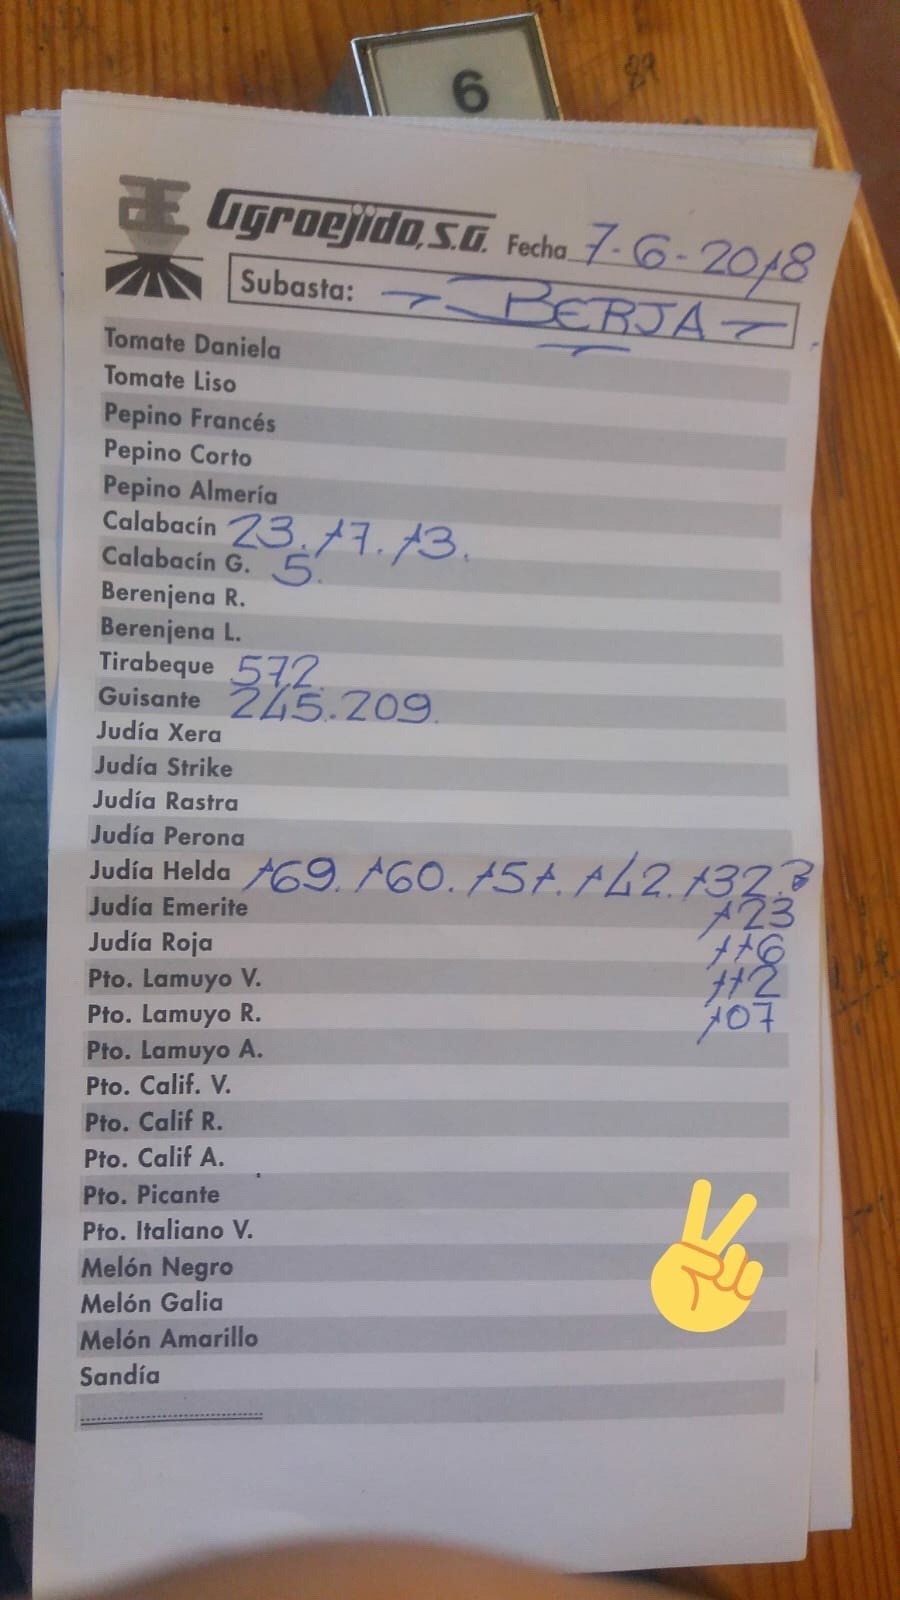 6
89
Agroejido, S.A. Fecha 7-6-2018
Subasta: - BERJA -
Tomate Daniela
Tomate Liso
Pepino Francés
Pepino Corto
Pepino Almería
Calabacín 23. 17. 13.
Calabacín G. 5.
Berenjena R.
Berenjena L.
Tirabeque 572
Guisante 245. 209.
Judía Xera
Judía Strike
Judía Rastra
Judía Perona
Judía Helda 169. 160. 151. 142. 132.
Judía Emerite 123
Judía Roja 116
Pto. Lamuyo V. 112
Pto. Lamuyo R. 107
Pto. Lamuyo A.
Pto. Calif. V.
Pto. Calif R.
Pto. Calif A.
Pto. Picante
Pto. Italiano V.
Melón Negro
Melón Galia
Melón Amarillo
Sandía